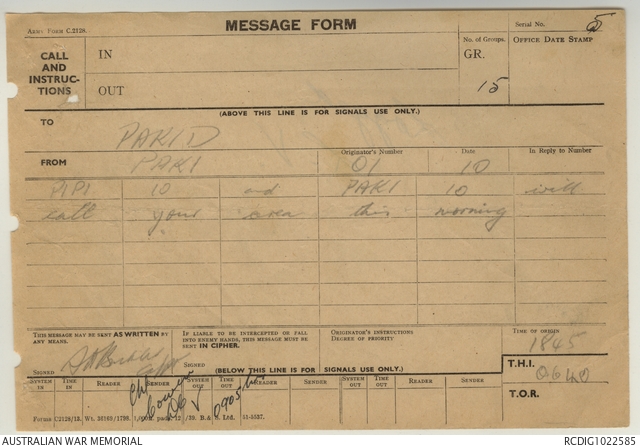 ARMY FORM C.2128.
MESSAGE FORM
Serial No. 5
CALL AND INSTRUC-TIONS
IN
No. of Groups.
GR.
15
OFFICE DATE STAMP
OUT
(ABOVE THIS LINE IS FOR SIGNALS USE ONLY.)
TO PAKI D
FROM PAKI
Originator's Number 01
Date 10
In Reply to Number
PIPI 10 and PAKI 10 will
call your area this morning
THIS MESSAGE MAY BE SENT AS WRITTEN BY ANY MEANS.
IF LIABLE TO BE INTERCEPTED OR FALL INTO ENEMY HANDS, THIS MESSAGE MUST BE SENT IN CIPHER.
ORIGINATOR'S INSTRUCTIONS
DEGREE OF PRIORITY
TIME OF ORIGIN
1845
SIGNED
SIGNED
(BELOW THIS LINE IS FOR SIGNALS USE ONLY.)
T.H.I. 0640
SYSTEM IN TIME IN READER SENDER SYSTEM OUT TIME OUT READER SENDER SYSTEM OUT TIME OUT READER SENDER
T.O.R.
0905 hrs
AUSTRALIAN WAR MEMORIAL
RCDIG1022585